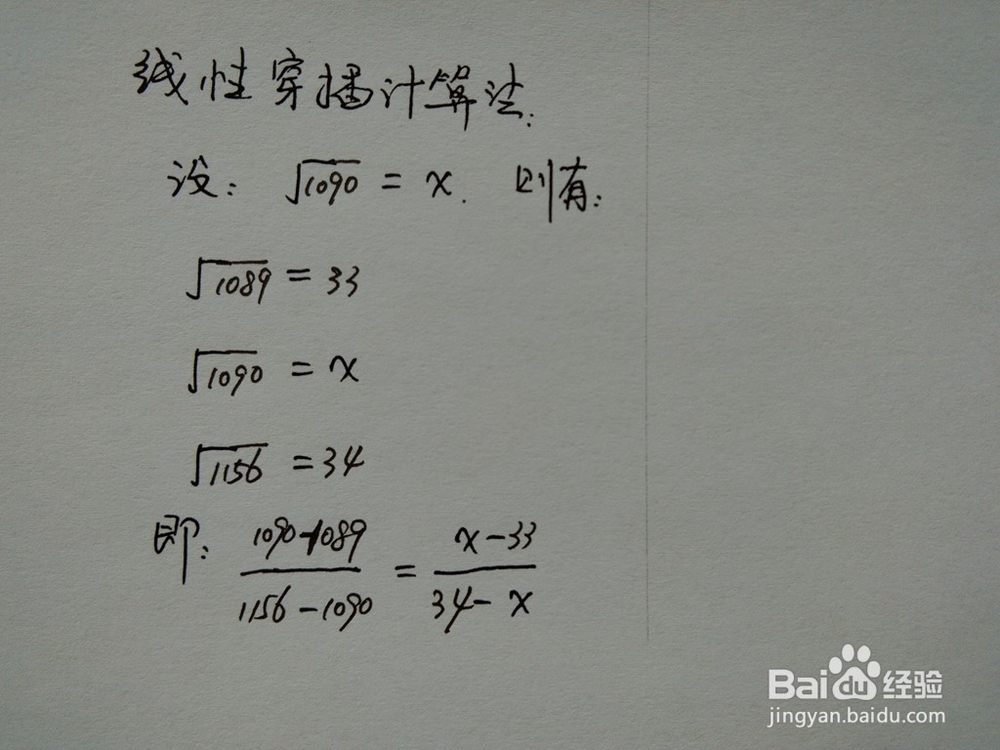 线性穿插计算法:
设: √1090 = x. 则有:
√1089 = 33
√1090 = x
√1156 = 34
即: (1090-1089)/(1156-1090) = (x-33)/(34-x)
Baidu经验
jingyan.baidu.com